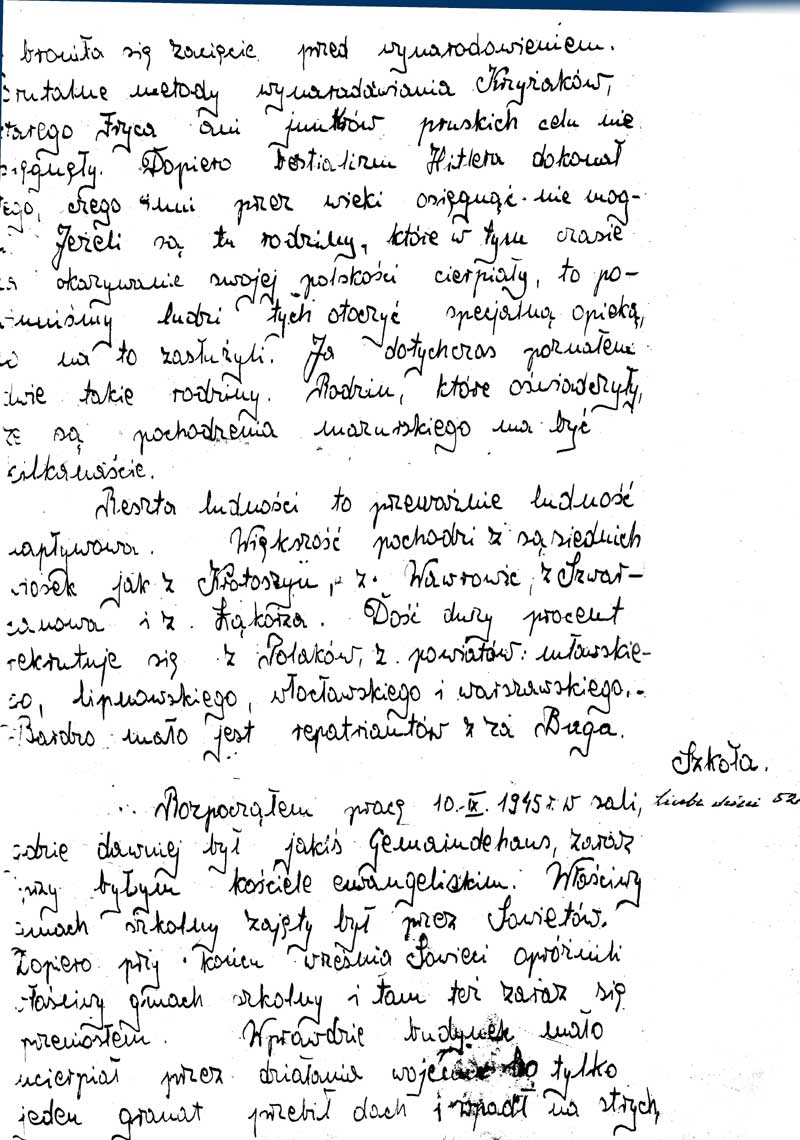 broniła się zacięcie przed wynarodowieniem.
brutalne metody wynaradawiania Krzyżaków,
starego Fryca ani junkrów pruskich celu nie
sięgnęły. Dopiero bestializm Hitlera dokonał
tego, czego inni przez wieki osięgnąć nie mog-
Jeżeli są tu rodziny, które w tym czasie
za okazywanie swojej polskości cierpiały, to po-
winniśmy ludzi tych otoczyć specjalną opieką,
bo na to zasłużyli. Ja dotychczas poznałem
dwie takie rodziny. Rodzin, które oświadczyły,
że są pochodzenia mazurskiego ma być
kilkanaście.
Reszta ludności to przeważnie ludność
napływowa. Większość pochodzi z sąsiednich
wiosek jak z Krotoszyn, z Wawrowic, z Szwar-
canowa i z Łąkorza. Dość duży procent
rekrutuje się z Polaków, z powiatów: mławskie-
go, lipnowskiego, włocławskiego i warszawskiego.
Bardzo mało jest repatriantów z za Buga.
Szkoła.
Rozpocząłem pracę 10.IX.1945r. w sali, liczba dzieci 52
gdzie dawniej był jakiś Gemaindehaus, zaraz
przy byłym kościele ewangeliskim. Właściwy
gmach szkolny zajęty był przez Sowietów.
Dopiero przy końcu września Sowieci opróżnili
właściwy gmach szkolny i tam też zaraz się
przeniosłem. Wprawdzie budynek mało
ucierpiał przez działania wojenne bo tylko
jeden granat przebił dach i wpadł na strych,